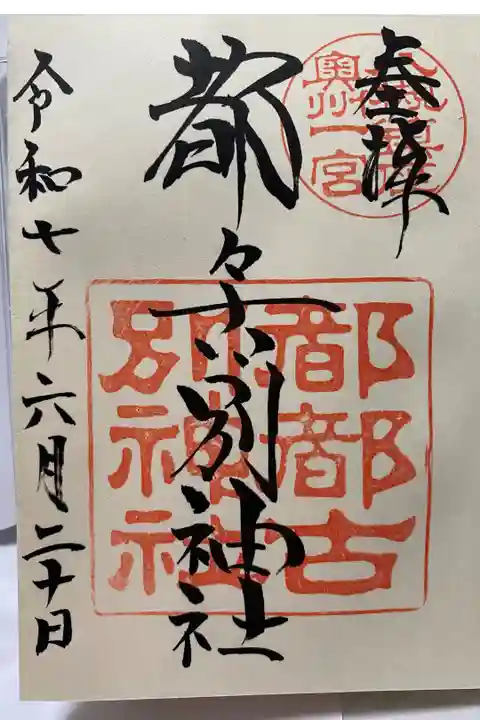 奉拝
奥州一宮
都々古別神社
都都古
別神社
令和七年六月二十日